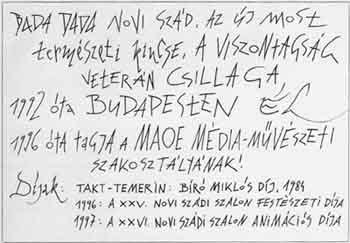 DADA DADA NOVI SZÁD, AZ ÚJ MOST
TERMÉSZETI KINCSE, A VISZONTAGSÁG
VETERÁN CSILLAGA,
1992 ÓTA BUDAPESTEN ÉL
1996 ÓTA TAGJA A MAOE MÉDIA-MŰVÉSZETI
SZAKOSZTÁLYÁNAK!
Díjak: TAKT-TEMERIN: BÍRÓ MIKLÓS DÍJ, 1984
1996: A XXV. NOVI SZÁDI SZALON FESTÉSZETI DÍJA
1997: A XXVI. NOVI SZÁDI SZALON ANIMÁCIÓS DÍJA